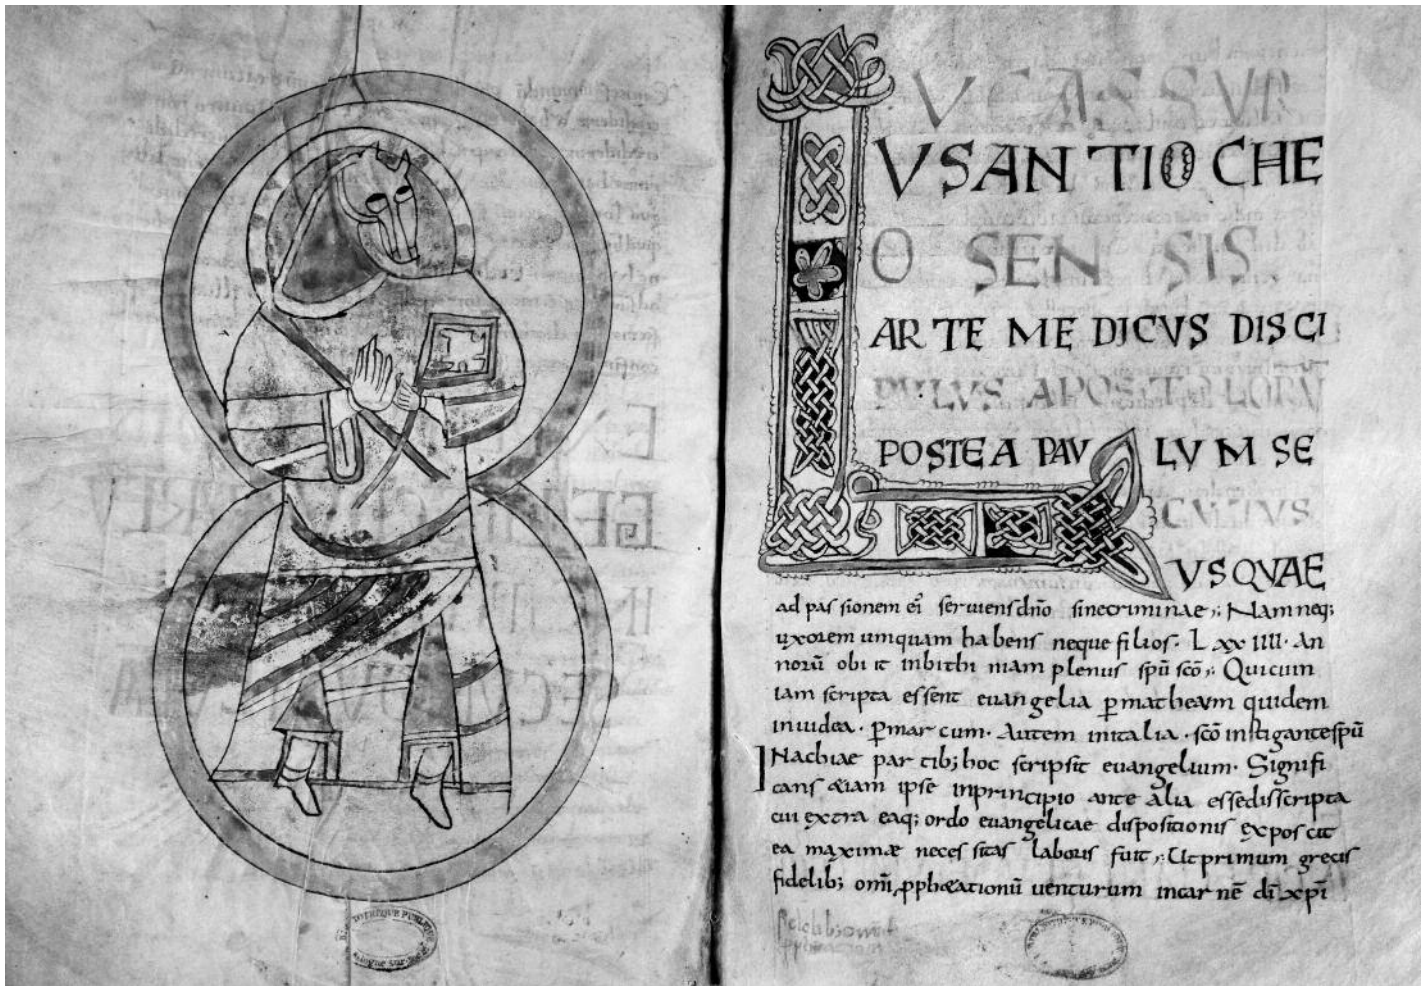 LUCAS SVR
VSAN TIO CHE
O SEN SIS
AR TE ME DICVS DIS CI
PVLVS APOSTOLORV
POSTEA PAV LVM SE
CVTVS
VSQVAE
ad pas sionem ei seruiens dño sine criminae Nam neq;
uxorem umquam habens neque filios · LXXIIII · An
norū obiit in bithi niam plenus spū scō Qui cum
iam scripta essent euangelia p matheum quidem
in iudea · p mar cum · Autem in italia · scō instigante spū
INachiae par tib; hoc scripsit euangelium · Signifi
cans &iam ipse in principio ante alia esse discripta
cui extra eaq; ordo euangelicae dispositionis exposcit
ea maximæ neces sitas laboris fuit Ut primum grecis
fidelib; omī pph&ationū uenturum in car nē dī xpī